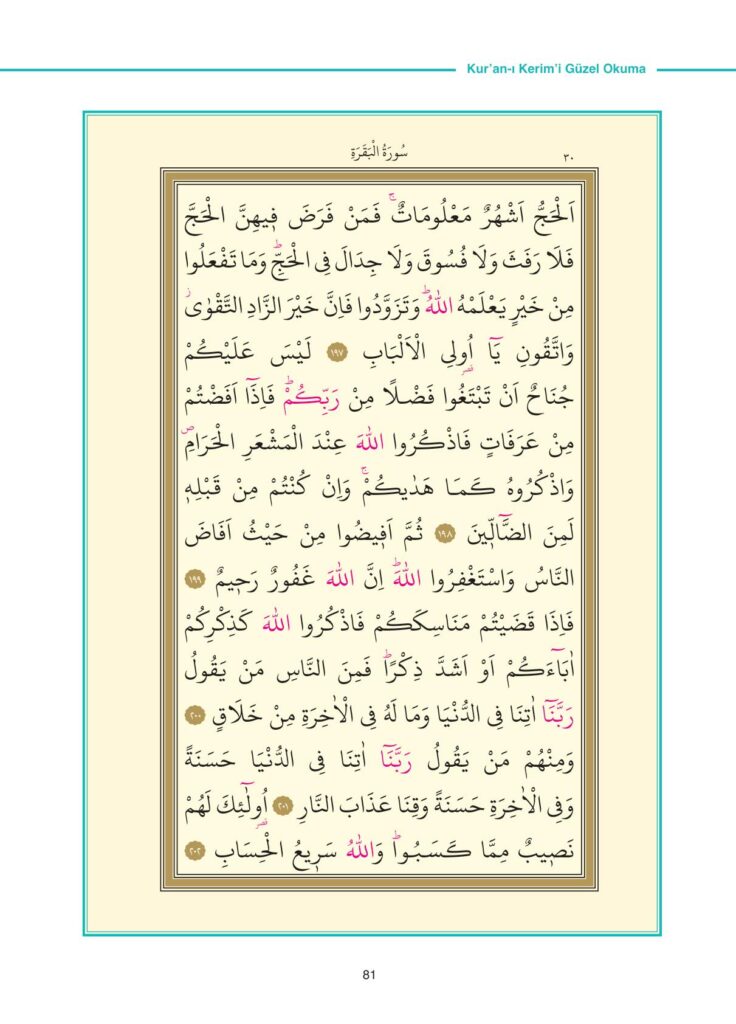 Kur’an-ı Kerim’i Güzel Okuma
سُورَةُ الْبَقَرَةِ
٣٠
اَلْحَجُّ اَشْهُرٌ مَعْلُومَاتٌۚ فَمَنْ فَرَضَ ف۪يهِنَّ الْحَجَّ
فَلَا رَفَثَ وَلَا فُسُوقَ وَلَا جِدَالَ فِي الْحَجِّۜ وَمَا تَفْعَلُوا
مِنْ خَيْرٍ يَعْلَمْهُ اللّٰهُۜ وَتَزَوَّدُوا فَاِنَّ خَيْرَ الزَّادِ التَّقْوٰىۘ
وَاتَّقُونِ يَٓا اُو۬لِي الْاَلْبَابِ ﴿١٩٧﴾ لَيْسَ عَلَيْكُمْ
جُنَاحٌ اَنْ تَبْتَغُوا فَضْلًا مِنْ رَبِّكُمْۜ فَاِذَٓا اَفَضْتُمْ
مِنْ عَرَفَاتٍ فَاذْكُرُوا اللّٰهَ عِنْدَ الْمَشْعَرِ الْحَرَامِۖ
وَاذْكُرُوهُ كَمَا هَدٰيكُمْۚ وَاِنْ كُنْتُمْ مِنْ قَبْلِه۪
لَمِنَ الضَّٓالّ۪ينَ ﴿١٩٨﴾ ثُمَّ اَف۪يضُوا مِنْ حَيْثُ اَفَاضَ
النَّاسُ وَاسْتَغْفِرُوا اللّٰهَۜ اِنَّ اللّٰهَ غَفُورٌ رَح۪يمٌ ﴿١٩٩﴾
فَاِذَا قَضَيْتُمْ مَنَاسِكَكُمْ فَاذْكُرُوا اللّٰهَ كَذِكْرِكُمْ
اٰبَٓاءَكُمْ اَوْ اَشَدَّ ذِكْرًاۜ فَمِنَ النَّاسِ مَنْ يَقُولُ
رَبَّنَٓا اٰتِنَا فِي الدُّنْيَا وَمَا لَهُ فِي الْاٰخِرَةِ مِنْ خَلَاقٍ ﴿٢٠٠﴾
وَمِنْهُمْ مَنْ يَقُولُ رَبَّنَٓا اٰتِنَا فِي الدُّنْيَا حَسَنَةً
وَفِي الْاٰخِرَةِ حَسَنَةً وَقِنَا عَذَابَ النَّارِ ﴿٢٠١﴾ اُو۬لٰٓئِكَ لَهُمْ
نَص۪يبٌ مِمَّا كَسَبُواۜ وَاللّٰهُ سَر۪يعُ الْحِسَابِ ﴿٢٠٢﴾
81